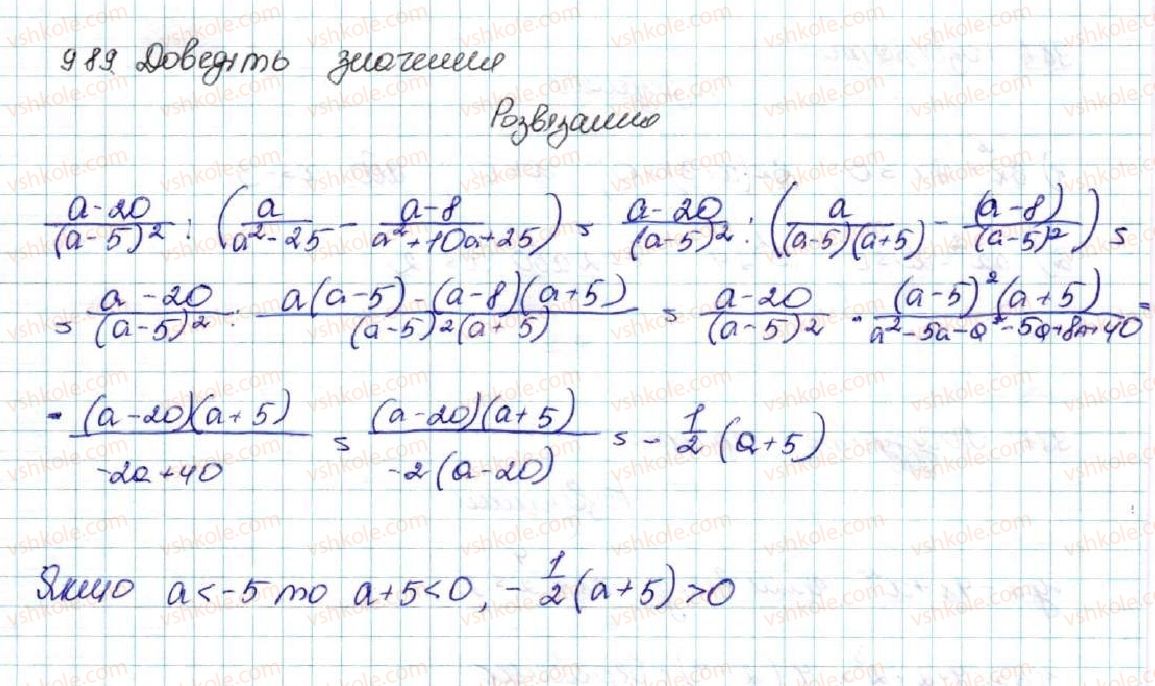 989. Доведіть значення
Розвязання
\frac{a-20}{(a-5)^2} : \left(\frac{a}{a^2-25} - \frac{a-8}{a^2+10a+25}\right) = \frac{a-20}{(a-5)^2} : \left(\frac{a}{(a-5)(a+5)} - \frac{(a-8)}{(a-5)^2}\right) =
= \frac{a-20}{(a-5)^2} : \frac{a(a-5)-(a-8)(a+5)}{(a-5)^2(a+5)} = \frac{a-20}{(a-5)^2} \cdot \frac{(a-5)^2(a+5)}{a^2-5a-a^2-5a+8a+40} =
= \frac{(a-20)(a+5)}{-2a+40} = \frac{(a-20)(a+5)}{-2(a-20)} = -\frac{1}{2}(a+5)
Якщо a<-5 то a+5<0, -\frac{1}{2}(a+5)>0